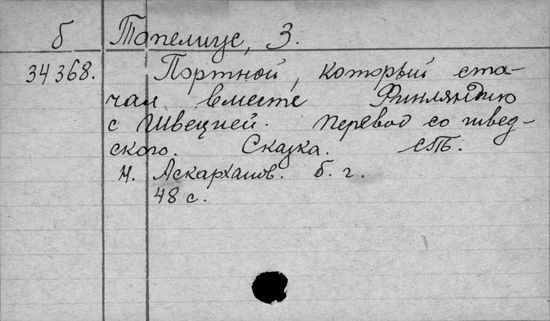 б Топелиус, З.
34368. Портной, который ста-
чал вместе Финляндию
с Швецией. Перевод со швед-
ского. Сказка. СПб.
И. Аскарханов. б. г.
48 с.